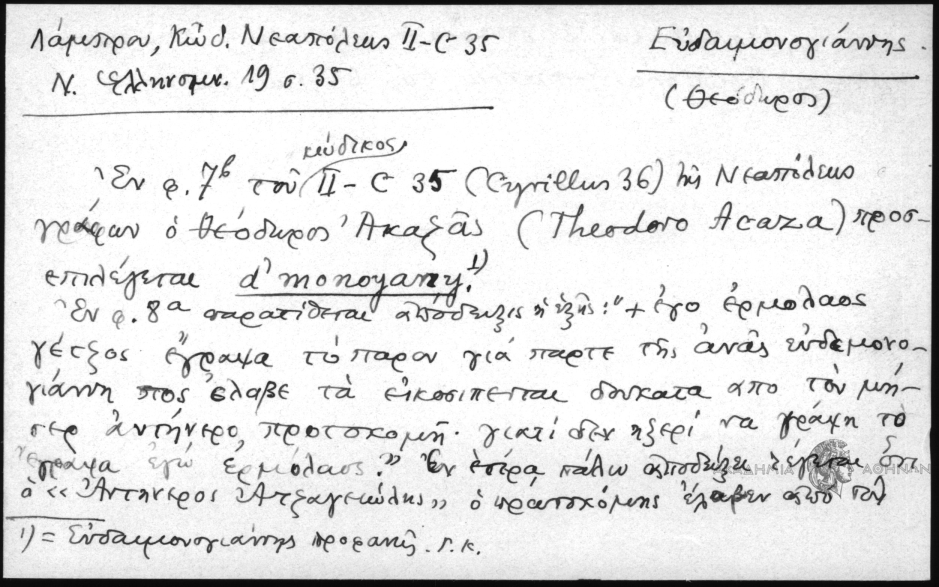 Λάμπρου, Κώδ. Νεαπόλεως II-C 35
Ν. Ἑλληνομν. 19 σ. 35
Εὐδαιμονογιάννης
(Θεόδωρος)
Ἐν φ. 7b τοῦ κώδικος II-C 35 (Cyrillus 36) τῆς Νεαπόλεως
γράφων ὁ Θεόδωρος Ἀκαζᾶς (Theodoro Acaza) προσ-
επιλέγεται d'monoyanny.1)
Ἐν φ. 8a παρατίθεται ἀπόδειξις ἡ ἑξῆς: "+ ἐγο ἐρμολαος
γέτζος ἔγραψα τὸ παρον γιὰ παρτε τῆς ἀνᾶς εὐδεμονο-
γιάννη πος ἔλαβε τὰ εἰκοσιπενται δουκατα απο τὸν μη-
σερ ἀντήνερο προτοκομῆ. γιατί δεν ηξερί να γράψη τὸ
ἔγραψα ἐγὼ ἑρμόλαος." Ἐν ἑτέρᾳ πάλιν ἀποδείξει λέγεται ὅτι
ὁ «Ἀντήνερος Ἀτζαγιώλης» ὁ πρωτοκόμης ἔλαβεν ἀπὸ τοῦ
1) = Εὐδαιμονογιάννης προφανῶς. Γ. Κ.
ΑΚΑΔΗΜΙΑ ΑΘΗΝΩΝ